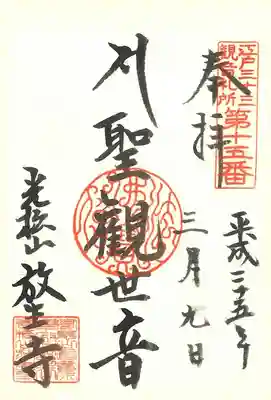 江戸三十三
観音札所
第十五番
奉拝
平成二十五年
三月九日
聖觀世音
光松山
放生寺